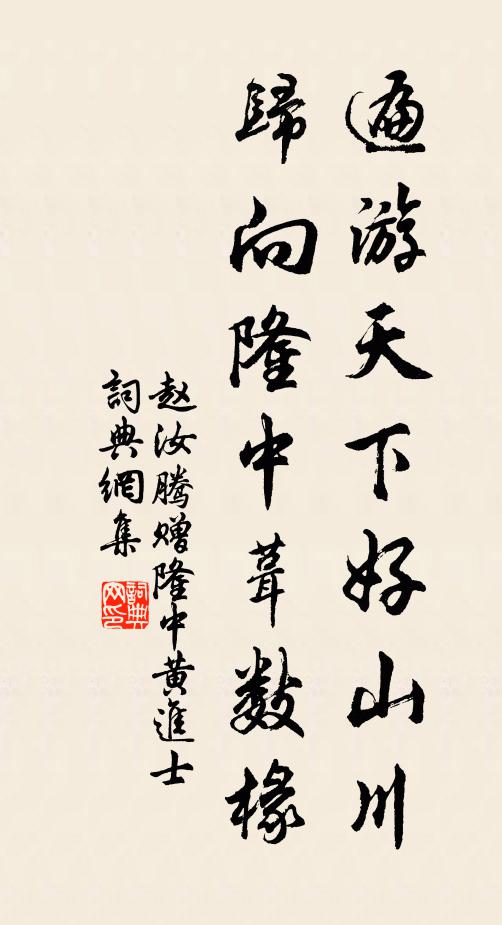 遍游天下好山川
歸向隆中葺數椽
赵汝騰赠隆中黄進士
詞典網集
詞典网印